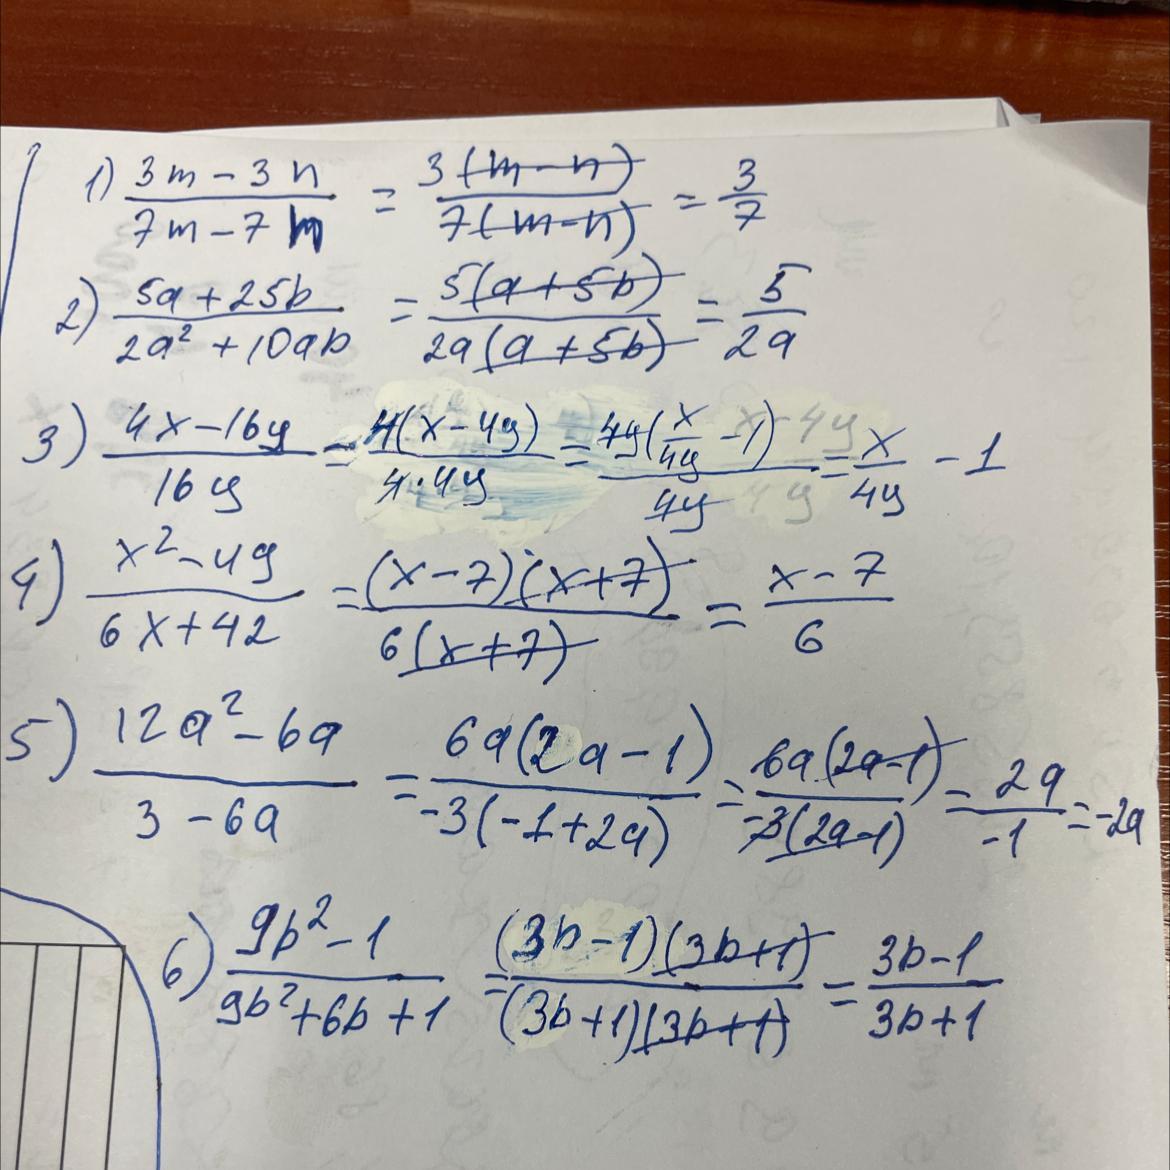 1) (3m - 3n)/(7m - 7n) = (3(m - n))/(7(m - n)) = 3/7
2) (5a + 25b)/(2a² + 10ab) = (5(a + 5b))/(2a(a + 5b)) = 5/(2a)
3) (4x - 16y)/(16y) = (4(x - 4y))/(4·4y) = (4y(x/(4y) - 1))/(4y) = x/(4y) - 1
4) (x² - 49)/(6x + 42) = ((x - 7)(x + 7))/(6(x + 7)) = (x - 7)/6
5) (12a² - 6a)/(3 - 6a) = (6a(2a - 1))/(-3(-1 + 2a)) = (6a(2a - 1))/(-3(2a - 1)) = (2a)/(-1) = -2a
6) (9b² - 1)/(9b² + 6b + 1) = ((3b - 1)(3b + 1))/((3b + 1)(3b + 1)) = (3b - 1)/(3b + 1)